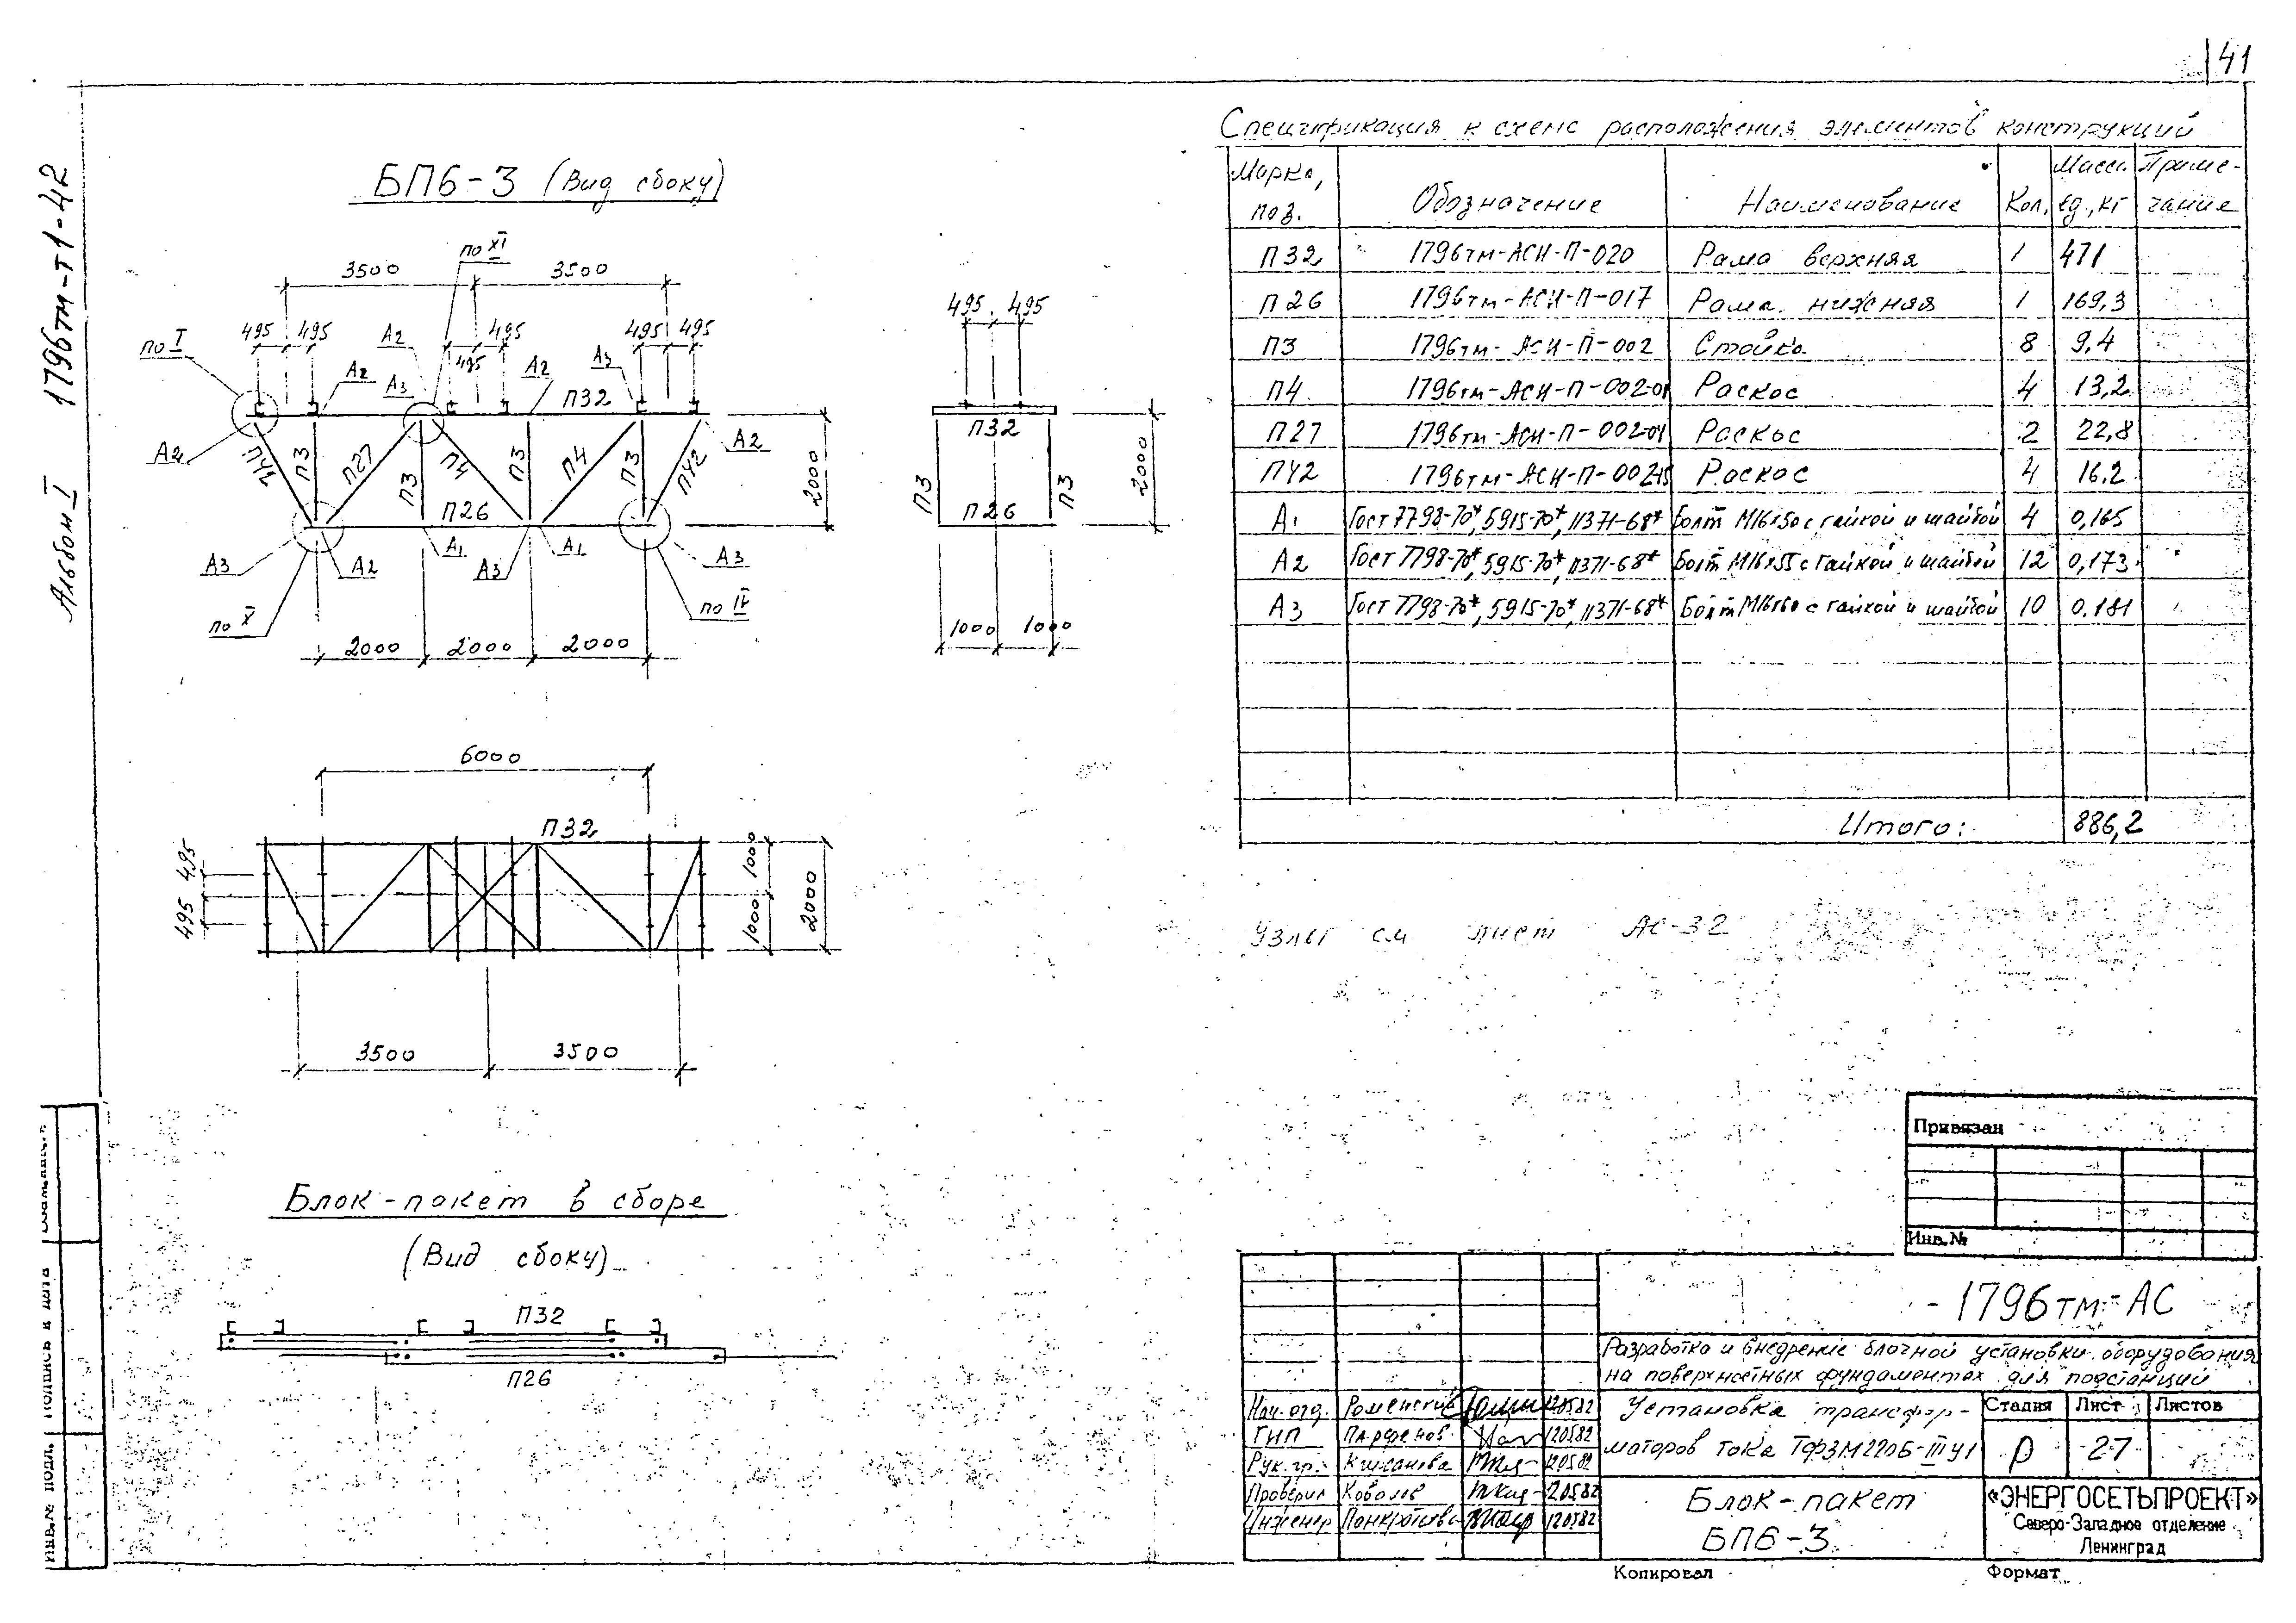 41
Альбом I 1796тм-т1-42
БП6-3 (Вид сбоку)
по XI
3500 3500
495 495 А2 495 495 495
по I
495
А2 А3 А2 А3
П32
А2 А2
П42 П3 П27 П3 П4 П3 П4 П3 П42
2000
П26
А3 А2 А1 А3 А1 А3
по X по IV
2000 2000 2000
495 495
П32
П3 П3
2000
П26
1000 1000
6000
П32
495 495
1000 1000
2000
3500 3500
Блок-пакет в сборе
(Вид сбоку)
П32
П26
Спецификация к схеме расположения элементов конструкций
Марка, поз. Обозначение Наименование Кол. Масса ед., кг Приме-чание
П32 1796тм-АСИ-П-020 Рама верхняя 1 471
П26 1796тм-АСИ-П-017 Рама нижняя 1 169,3
П3 1796тм-АСИ-П-002 Стойка 8 9,4
П4 1796тм-АСИ-П-002-01 Раскос 4 13,2
П27 1796тм-АСИ-П-002-04 Раскос 2 22,8
П42 1796тм-АСИ-П-002-15 Раскос 4 16,2
А1 Гост 7798-70*, 5915-70*, 11371-68* Болт М16х50 с гайкой и шайбой 4 0,165
А2 Гост 7798-70*, 5915-70*, 11371-68* Болт М16х55 с гайкой и шайбой 12 0,173
А3 Гост 7798-70*, 5915-70*, 11371-68* Болт М16х60 с гайкой и шайбой 10 0.181
Итого: 886,2
Узлы см лист АС-32
Привязан
Инв.№
1796тм-АС
Разработка и внедрение блочной установки оборудования
на поверхностных фундаментах для подстанций
Нач. отд. Роменский 12.05.82
ГИП Парфенов 12.05.82
Рук. гр. 12.05.82
Проверил Ковалев 12.05.82
Инженер 12.05.82
Установка трансфор-
маторов тока ТФЗМ220Б-III У1
Стадия Лист Листов
Р 27
Блок-пакет
БП6-3
«ЭНЕРГОСЕТЬПРОЕКТ»
Северо-Западное отделение
Ленинград
Копировал Формат
Инв.№ подл. Подпись и дата